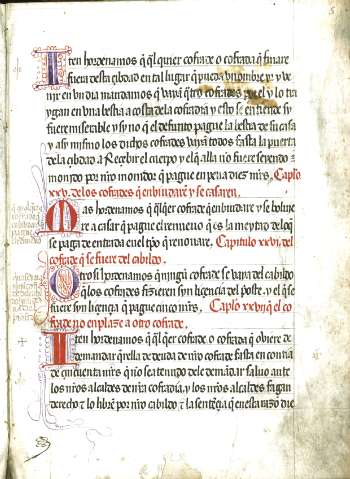 Iten hordenamos q̄ q̄l quier cofrade o cofrada q̄ finare
fuera desta çibdad en tal lugar q̄ pueda vn ombre yr y ve
nir en vn dia mandamos q̄ vayā q̄tro cofrades por el y lo tra
ygan en vna bestia a costa de la cofradia y esto se entiende sy
fuere miserable y sy no q̄ el defunto pague la bestia de su casa
y asy mismo los dichos cofrades vayā todos fasta la puerta
de la çibdad a Reçebir el cuerpo y el q̄ alla nō fuere seyendo
mōdo por nr̄o mōnidor q̄ pague en pena diez mr̄s, Capl̄o
xxv. de los cofrades q̄ enbiudarē y se casaren.
Mas hordenamos q̄ q̄lqer cofrade q̄ enbiudare y se boluie
re a casar q̄ pague el renueuo q̄ es la meytad de lo q̄
se paga de entrada en el tp̄o q̄ renouare, Capitulo xxvi, del
cofrade q̄ se fuere del cabildo.
Otro si hordenamos q̄ nīgū cofrade se vaya del cabildo
q̄ los cofrades fizieren syn liçençia del poste. y el q̄ se
fuere syn liçençia q̄ pague çinco mr̄s, Capl̄o xxvij q̄ el co
frade no enplaze a otro cofrade.
Iten hordenamos q̄ q̄lqer cofrade o cofrada q̄ obiere de
demandar querella de deuda de nr̄o cofrade fasta en contia
de çinquenta mr̄s q̄ nō sea tenudo de le demādar saluo ante
los nr̄os alcaldes de nr̄a cofradia, y los nr̄os alcaldes fagan
derecho τ lo librē por nr̄o cabildo τ la sentēçia q̄ en esta razō die